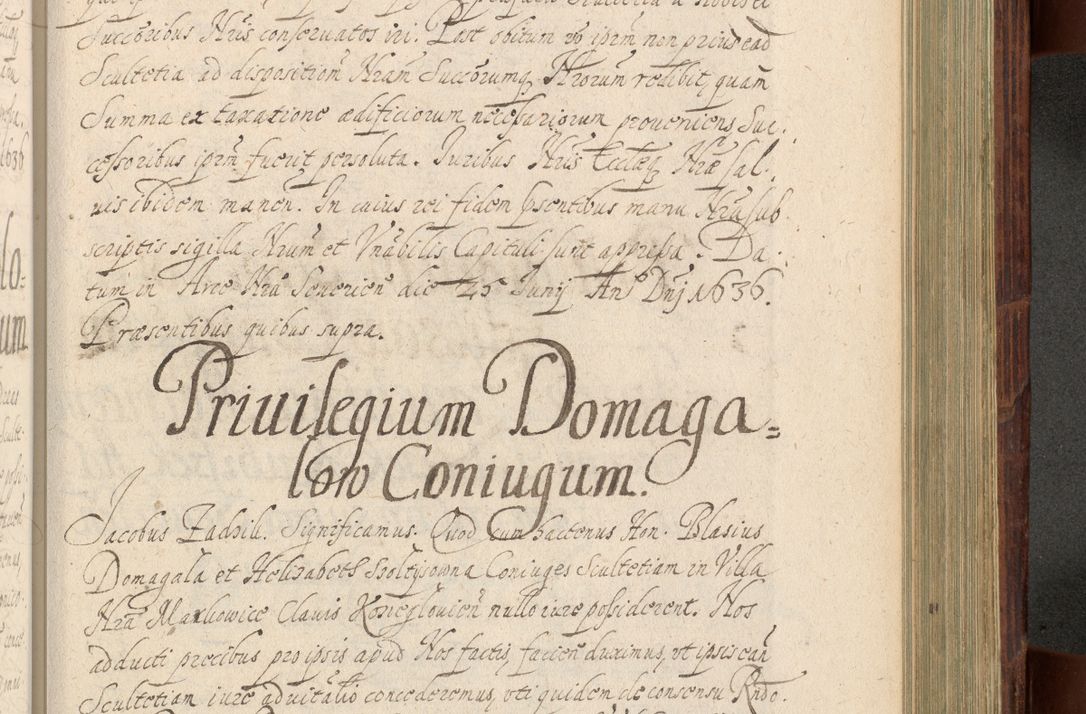 Succõribus Nr̃is conservatos iri. Post obitum vo ipsm̃ non prius ead
Scultetia ad dispositionẽ Nram̃ Succõrumq̃ Nrorum redibit, quam
Summa ex taxatione ædificiorum necessariorum proveniens Suc.
cessoribus ipsm̃ fuerit persoluta. Iuribus Nris Ecclæq̃ Nræ sal.
vis ibidem manen̄. In cuius rei fidem p̃sentibus manu Nra sub.
scriptis sigilla Nrum̃ et Vnabilis Capituli sunt appressa. Da.
tum in Arce Nra Severien̄ die 25 Junij An̄ Dnj 1636.
Præsentibus quibus supra.
Priuilegium Domaga=
low Coniugum.
Jacobus Zadzik. Significamus. Quod cum hactenus Hon. Blasius
Domagala et Helizabeth Szoltysowna Coniuges Scultetiam in Villa
Nrã Markowice Clavis Konieglovien̄ nullo iure possiderent. Nos
adducti precibus pro ipsis apud Nos factis, facien̄ duximus, vt ipsis eañ
Scultetiam iure advitalitio concederemus, vti quidem de consensu Rndo.